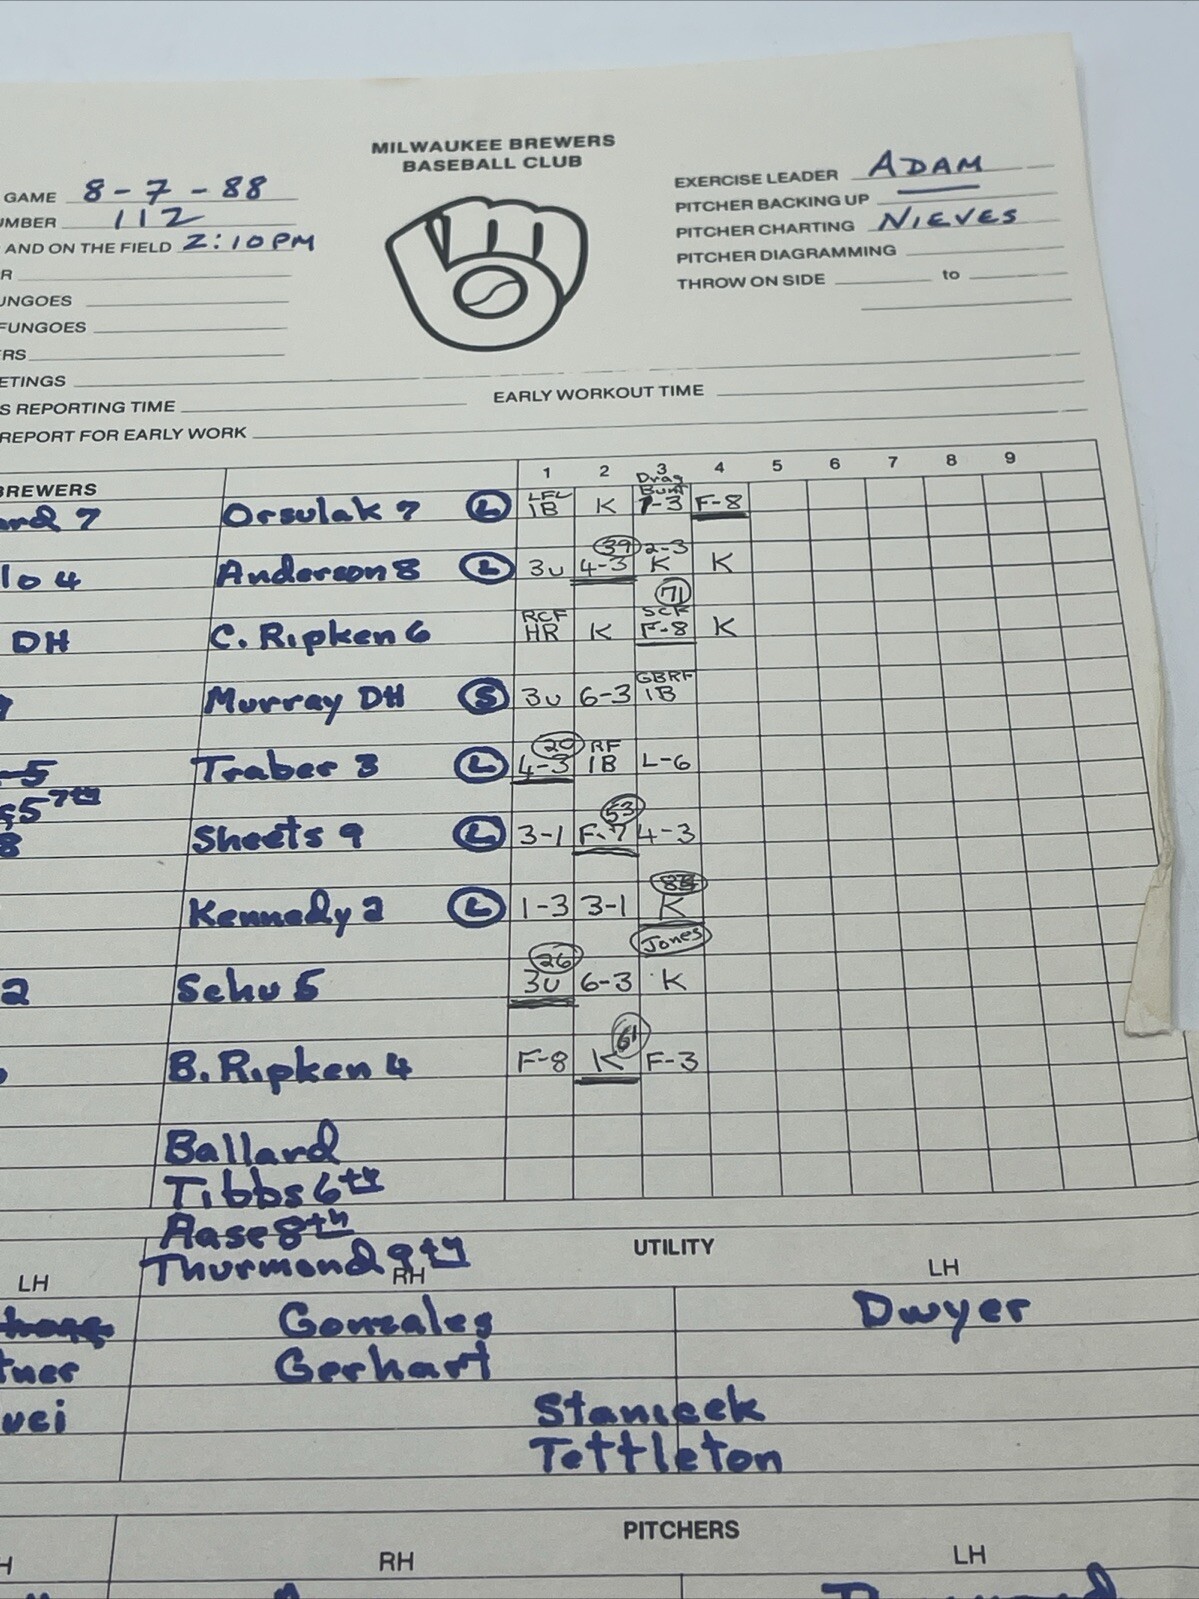 MILWAUKEE BREWERS
BASEBALL CLUB
GAME 8-7-88
UMBER 112
AND ON THE FIELD 2:10PM
R
UNGOES
FUNGOES
ERS
ETINGS
S REPORTING TIME
REPORT FOR EARLY WORK
EXERCISE LEADER ADAM
PITCHER BACKING UP
PITCHER CHARTING NIEVES
PITCHER DIAGRAMMING
THROW ON SIDE to
EARLY WORKOUT TIME
BREWERS 1 2 3 4 5 6 7 8 9
7 Orsulak 7 L 1B K Drag Bunt 1-3 F-8
lo 4 Anderson 8 L 3U 39 4-3 2-3 K K
DH C. Ripken 6 RCF HR K 71 SCF F-8 K
Murray DH S 3U 6-3 GBRF 1B
5 Traber 3 L 20 4-3 RF 1B L-6
5 7th
8 Sheets 9 L 3-1 53 F-7 4-3
Kennedy 2 L 1-3 3-1 K
Jones
2 Schu 5 26 3U 6-3 K
B. Ripken 4 F-8 61 K F-3
Ballard
Tibbs 6th
Aase 8th
Thurmond 9th
UTILITY
LH RH LH
Gonzales Dwyer
tner Gerhart
uci Stanicek
Tettleton
PITCHERS
H RH LH